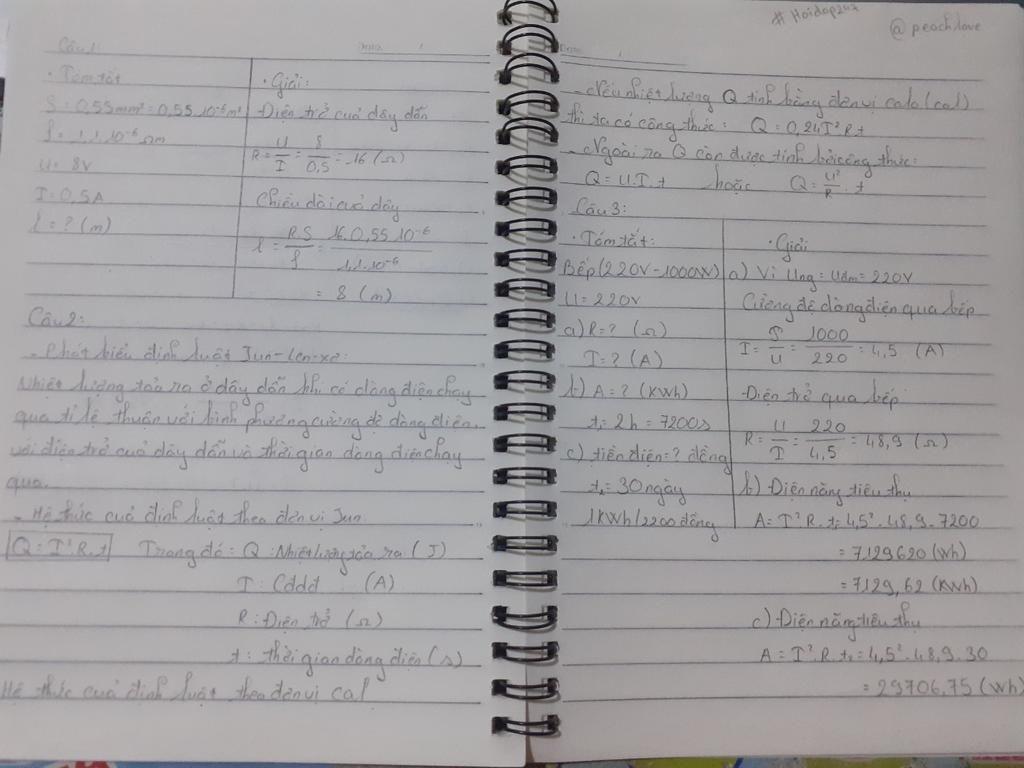 #Hoidap247
@peachlove
Câu 1:
• Tóm tắt
S = 0,55mm² = 0,55.10⁻⁶m²
ρ = 1,1.10⁻⁶ Ωm
U = 8V
I = 0,5A
l = ? (m)
• Giải:
Điện trở của dây dẫn
R = U/I = 8/0,5 = 16 (Ω)
Chiều dài của dây
l = R.S/ρ = 16.0,55.10⁻⁶/1,1.10⁻⁶
= 8 (m)
Câu 2:
- Phát biểu định luật Jun-len-xơ:
Nhiệt lượng toả ra ở dây dẫn khi có dòng điện chạy
qua tỉ lệ thuận với bình phương cường độ dòng điện,
với điện trở của dây dẫn và thời gian dòng điện chạy
qua.
- Hệ thức của định luật theo đơn vị Jun
Q = I².R.t Trong đó: Q: Nhiệt lượng tỏa ra (J)
I: Cđdđ (A)
R: Điện trở (Ω)
t: thời gian dòng điện (s)
Hệ thức của định luật theo đơn vị cal
- Nếu nhiệt lượng Q tính bằng đơn vị calo (cal)
thì ta có công thức: Q = 0,24I²Rt
- Ngoài ra Q còn được tính bởi công thức:
Q = U.I.t hoặc Q = U²/R . t
Câu 3:
• Tóm tắt:
Bếp (220V - 1000W)
U = 220V
a) R = ? (Ω)
I = ? (A)
b) A = ? (KWh)
t₁ = 2h = 7200s
c) tiền điện = ? đồng
t₂ = 30 ngày
1KWh/2200 đồng
• Giải
a) Vì Ung = Uđm = 220V
Cường độ dòng điện qua bếp
I = P/U = 1000/220 = 4,5 (A)
Điện trở qua bếp
R = U/I = 220/4,5 = 48,9 (Ω)
b) Điện năng tiêu thụ
A = I².R.t₁ = 4,5².48,9.7200
= 7129620 (Wh)
= 7129,62 (KWh)
c) Điện năng tiêu thụ
A = I².R.t₂ = 4,5².48,9.30
= 29706,75 (Wh)